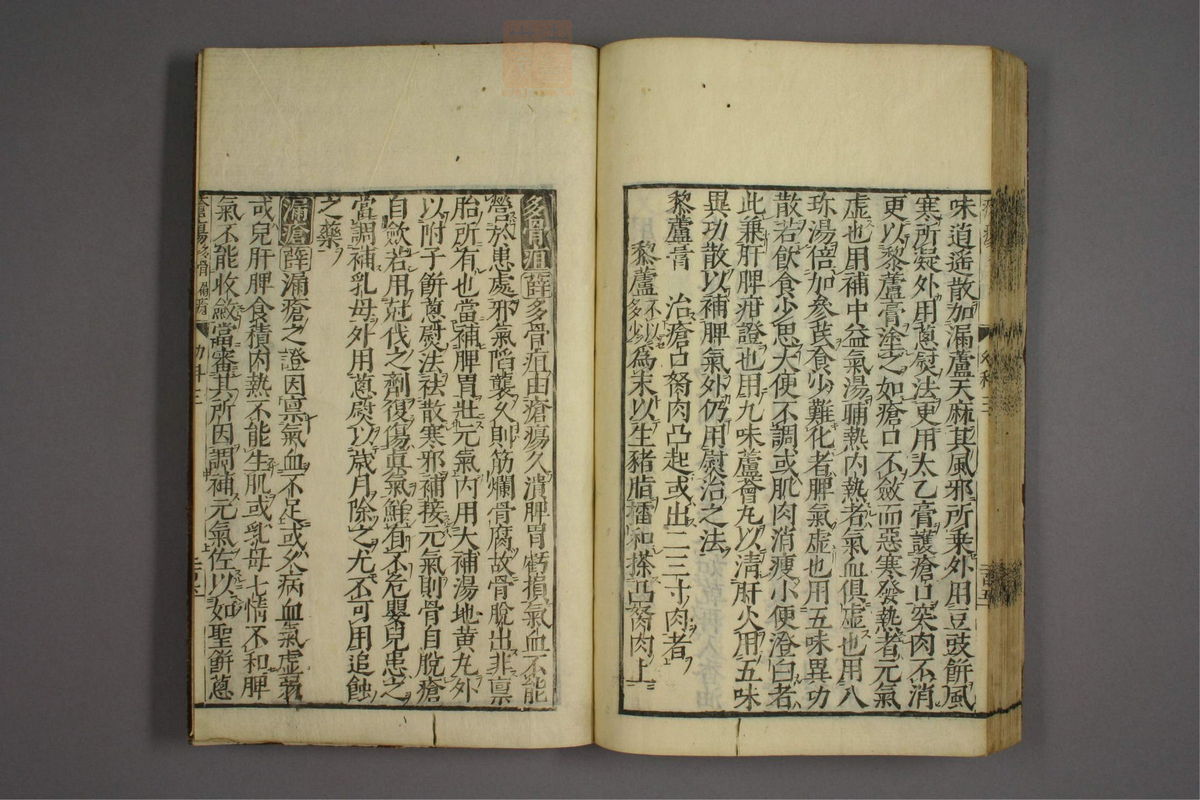 味逍遥散加漏蘆天麻其風邪所乗外用豆豉餅風
寒所凝外用蔥熨法更用太乙膏護瘡口突肉不消
更以藜蘆膏塗之如瘡口不斂而惡寒發熱者元氣
虛也用補中益氣湯晡熱内熱者氣血俱虛也用八
珎湯倍加參芪食少難化者脾氣虛也用五味異功
散若飲食少思大便不調或肌肉消瘦小便澄白者
此兼肝脾疳證也用九味蘆薈丸以清肝火用五味
異功散以補脾氣外仍用熨治之法
藜蘆膏　治瘡口胬肉凸起或出二三寸肉者
藜蘆不以多少爲末以生豬脂擂和搽凸胬肉上
多骨疽薛多骨疽由瘡瘍久潰脾胃虧損氣血不能
營於患處邪氣陷襲久則筋爛骨腐故骨脫出非禀
胎所有也當補脾胃壯元氣内用大補湯地黄丸外
以附子餅蔥熨法祛散寒邪補接元氣則骨自脫瘡
自斂若用尅伐之劑復傷真氣鮮有不危嬰兒患之
當調補乳母外用蔥熨以歲月除之尤不可用追蝕
之藥
漏瘡薛漏瘡之證因禀氣血不足或久病血氣虛弱
或兒肝脾食積内熱不能生肌或乳母七情不和脾
氣不能收斂當審其所因調補元氣佐以如聖餅蔥